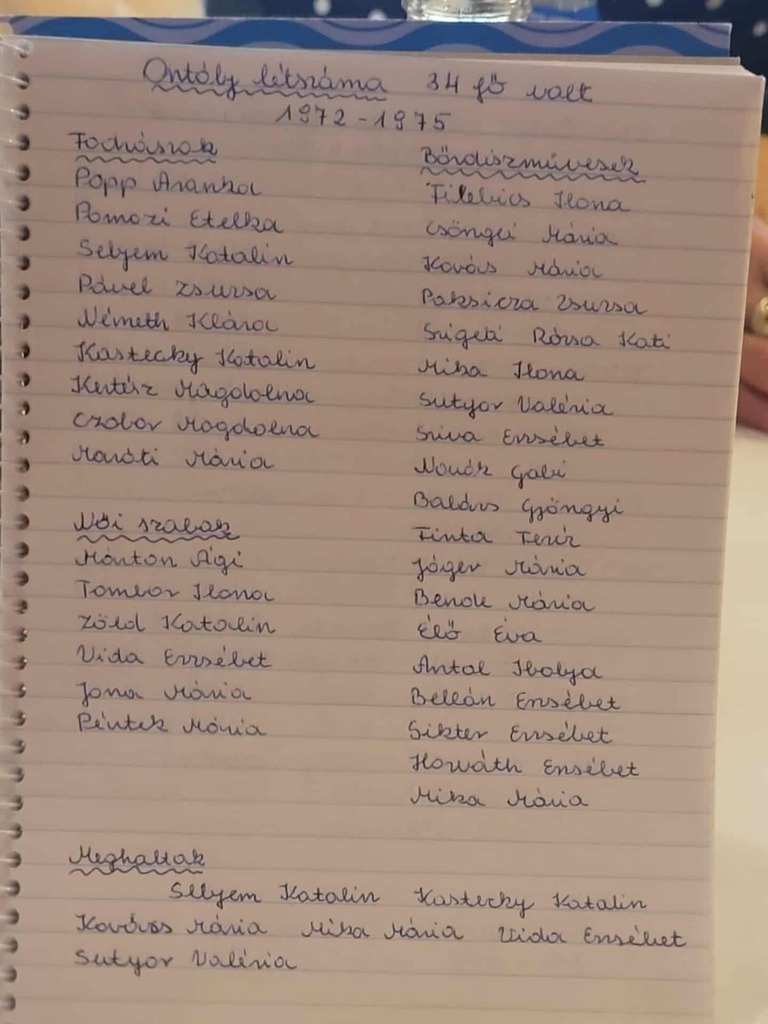 Osztály létszáma 34 fő volt
1972-1975
Fodrászok
Papp Aranka
Pomozi Etelka
Selyem Katalin
Pável Zsuzsa
Németh Klára
Kastecky Katalin
Kertész Magdolna
Czobor Magdolna
Maróti Mária
Női szabók
Márton Ági
Tombor Ilona
Zöld Katalin
Vida Erzsébet
Jona Mária
Péntek Mária
Bőrdíszművesek
Filebics Ilona
Csöngei Mária
Kovács Mária
Paksicza Zsuzsa
Szigeti Rózsa Kati
Mika Ilona
Sutyor Valéria
Sziva Erzsébet
Novák Gabi
Balázs Gyöngyi
Finta Teréz
Jáger Mária
Bende Mária
Élő Éva
Antal Ibolya
Bellán Erzsébet
Sikter Erzsébet
Horváth Erzsébet
Mika Mária
Meghaltak
Selyem Katalin Kastecky Katalin
Kovács Mária Mika Mária Vida Erzsébet
Sutyor Valéria